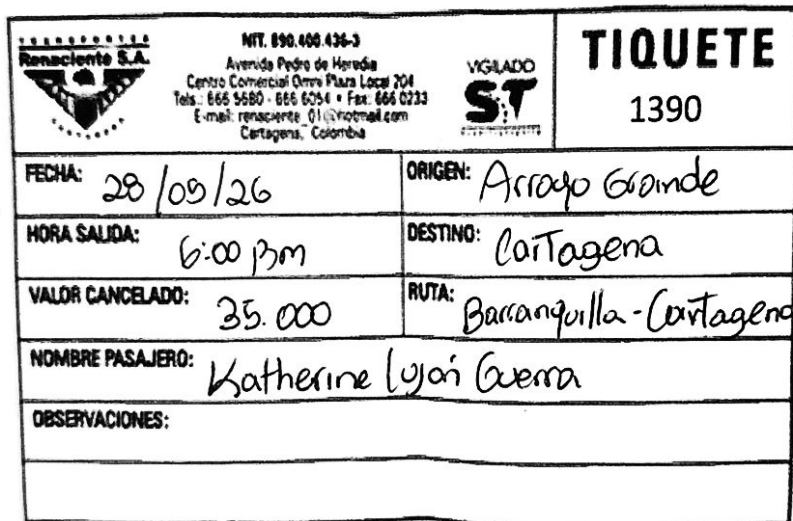 TRANSPORTES
Renaciente S.A.
CARTAGENA
NIT. 890.400.436-3
Avenida Pedro de Heredia
Centro Comercial Omni Plaza Local 204
Tels.: 666 5680 - 666 6054 • Fax: 666 0233
E-mail: renaciente_01@hotmail.com
Cartagena, Colombia
VIGILADO
ST
TIQUETE
1390
FECHA: 28/05/26
ORIGEN: Arroyo Grande
HORA SALIDA: 6:00 pm
DESTINO: Cartagena
VALOR CANCELADO: 35.000
RUTA: Barranquilla - Cartagena
NOMBRE PASAJERO: Katherine Luján Guerra
OBSERVACIONES: